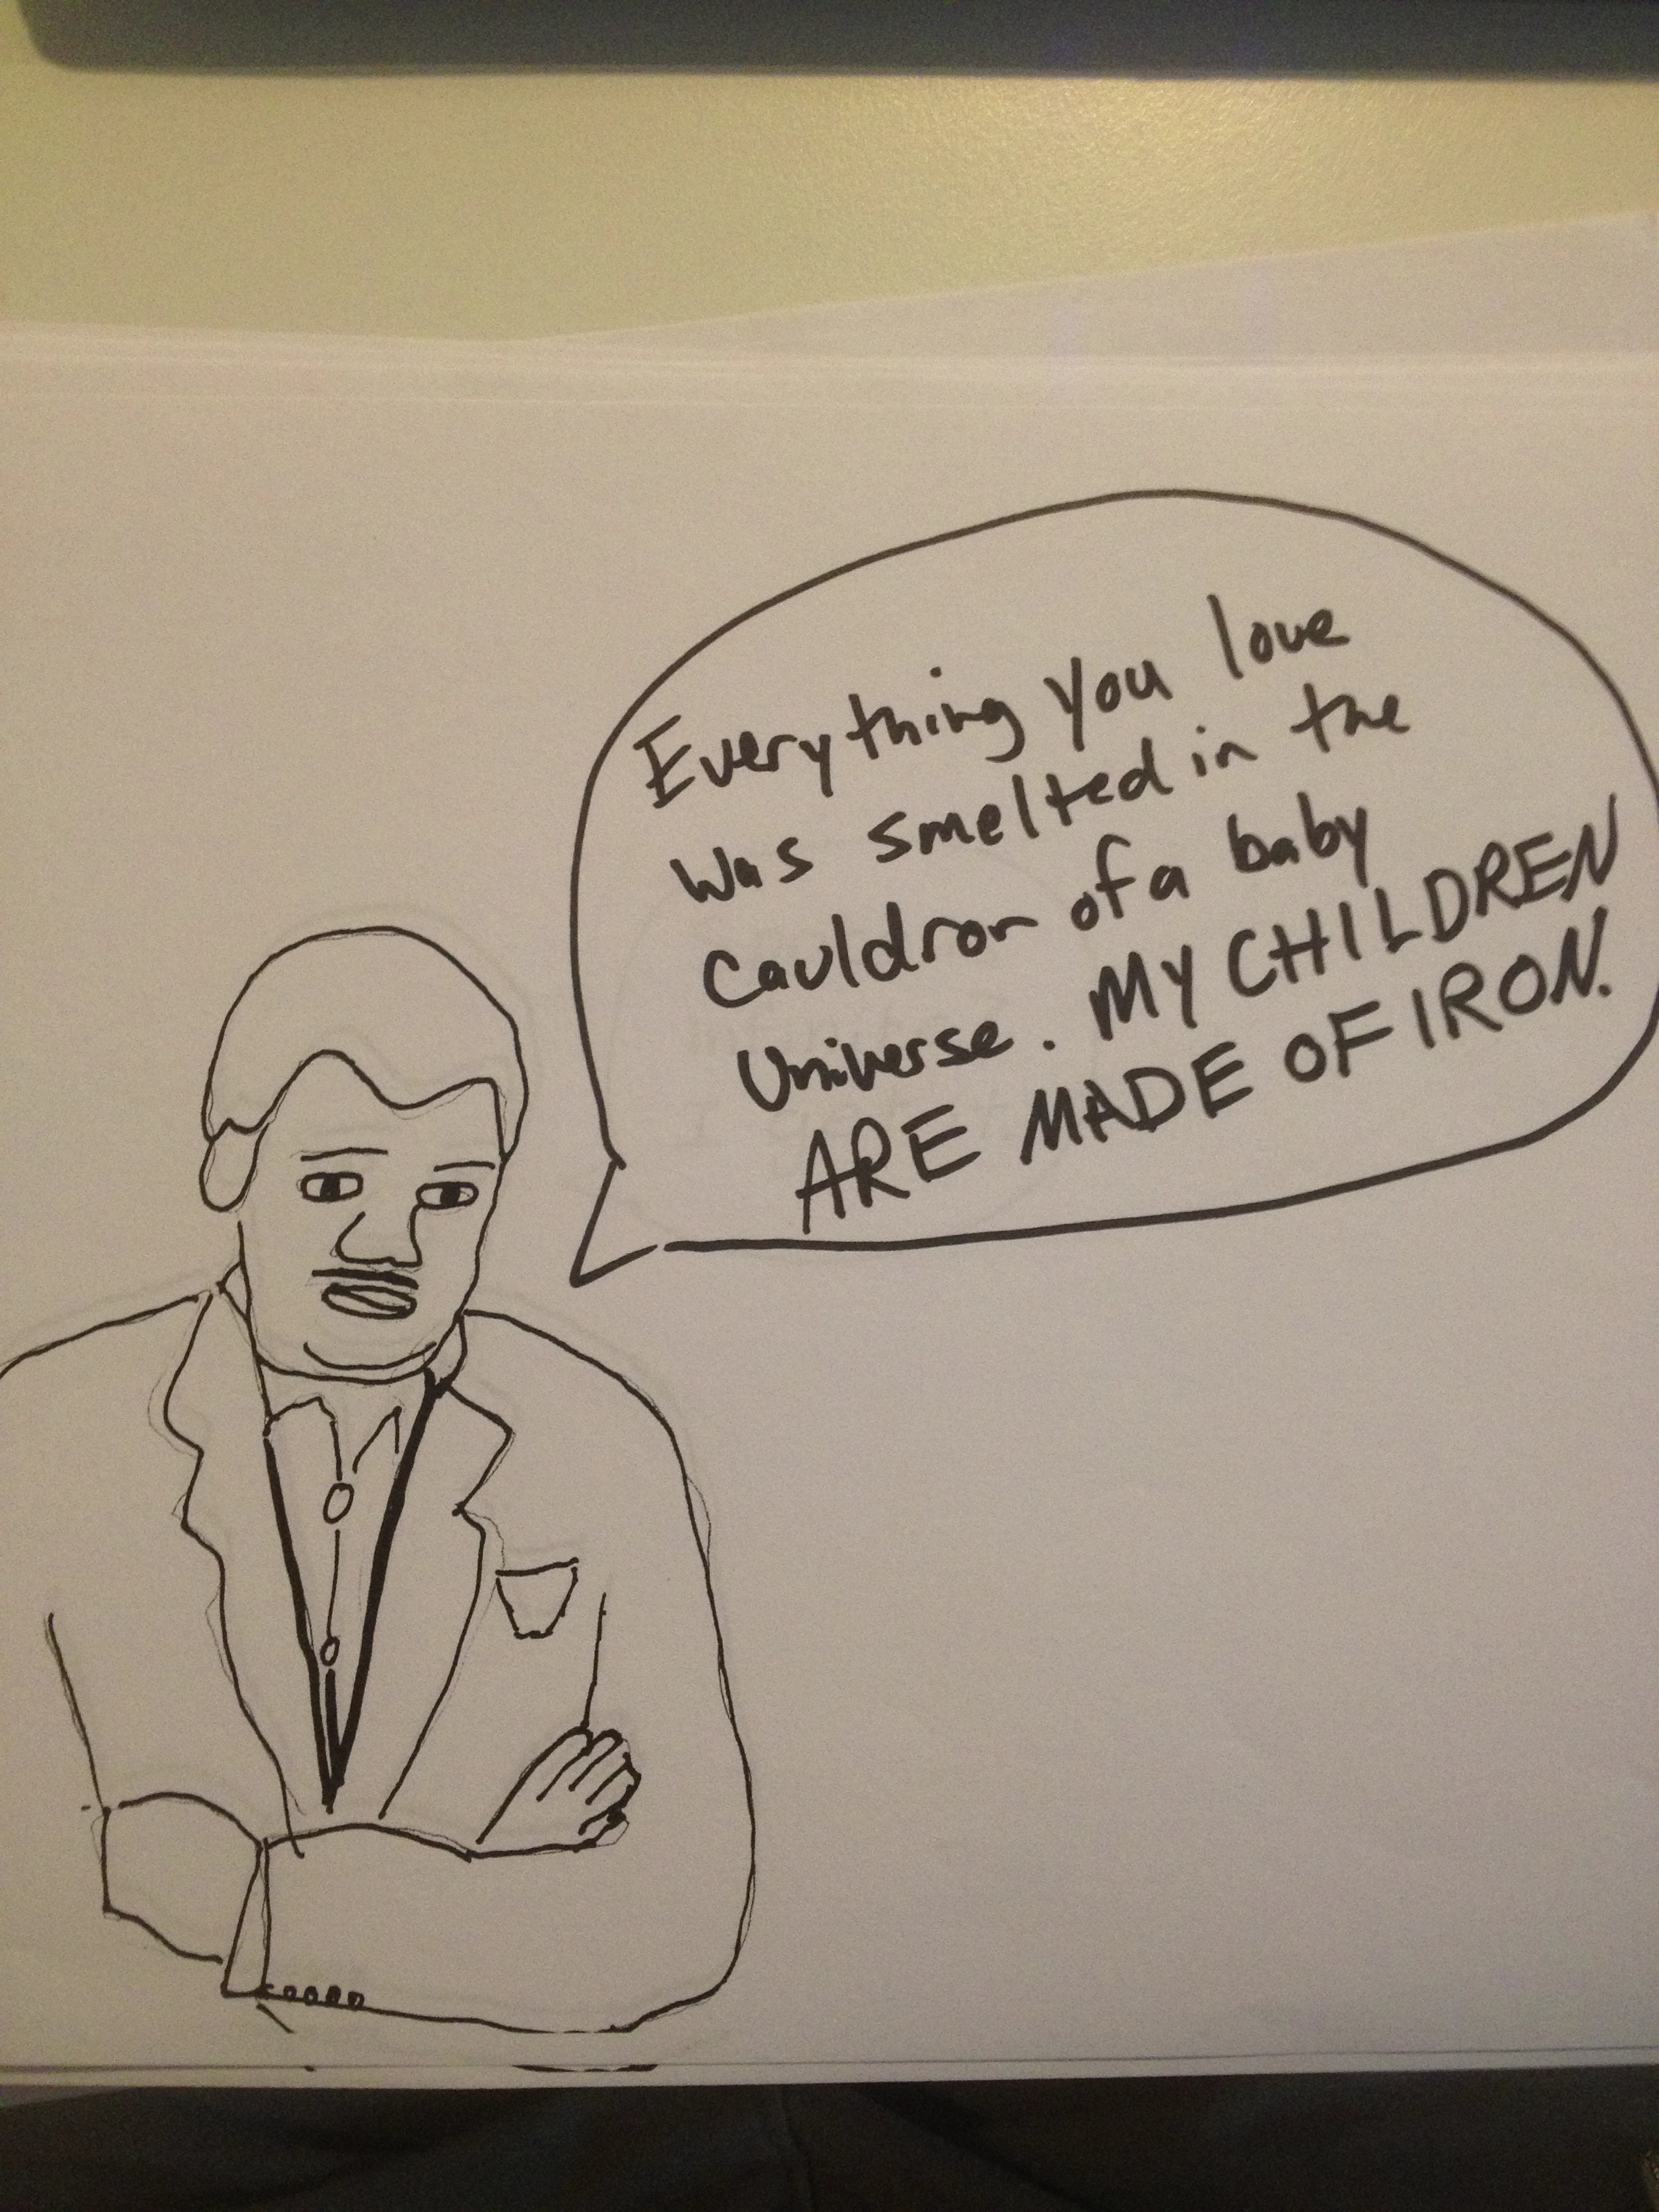 Everything you love
was smelted in the
Cauldron of a baby
Universe. MY CHILDREN
ARE MADE OF IRON.